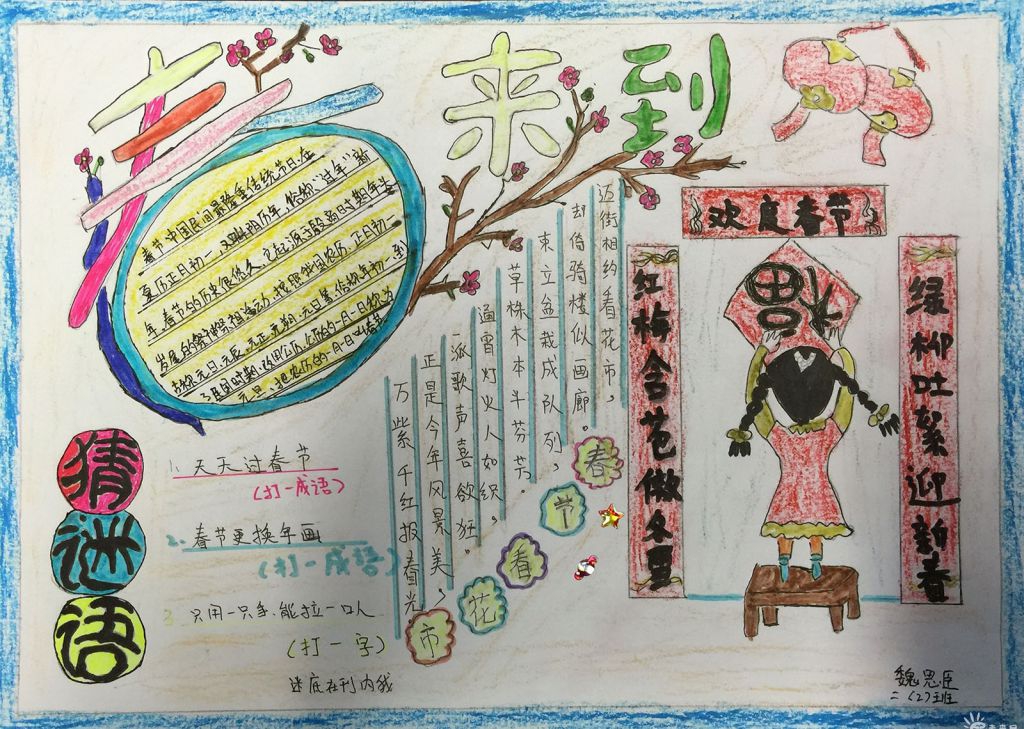 春来到
春节中国民间最隆重传统节日.在
夏历正月初一,又叫阴历年,俗称"过年"新
年,春节的历史很悠久,它起源于殷商时期年头
岁尾的祭神祭祖活动.按照我国农历,正月初一
古称元日、元辰、元正、元朔、元旦等,俗称年初一,到
了民国时期,改用公历,公历的一月一日称为
元旦,把农历的一月一日叫春节
迈街相约看花市,
却倚骑楼似画廊。
束立盆栽成队列,
草株木本斗芬芳。
通宵灯火人如织,
一派歌声喜欲狂。
正是今年风景美,
万紫千红报春光
春节看花市
欢庆春节
红梅含苞傲冬夏
福
绿柳吐絮迎新春
猜谜语
1.天天过春节
(打一成语)
2.春节更换年画
(打一成语)
3.只用一只手,能拉一口人
(打一字)
迷底在刊内我
魏思臣
二(2)班